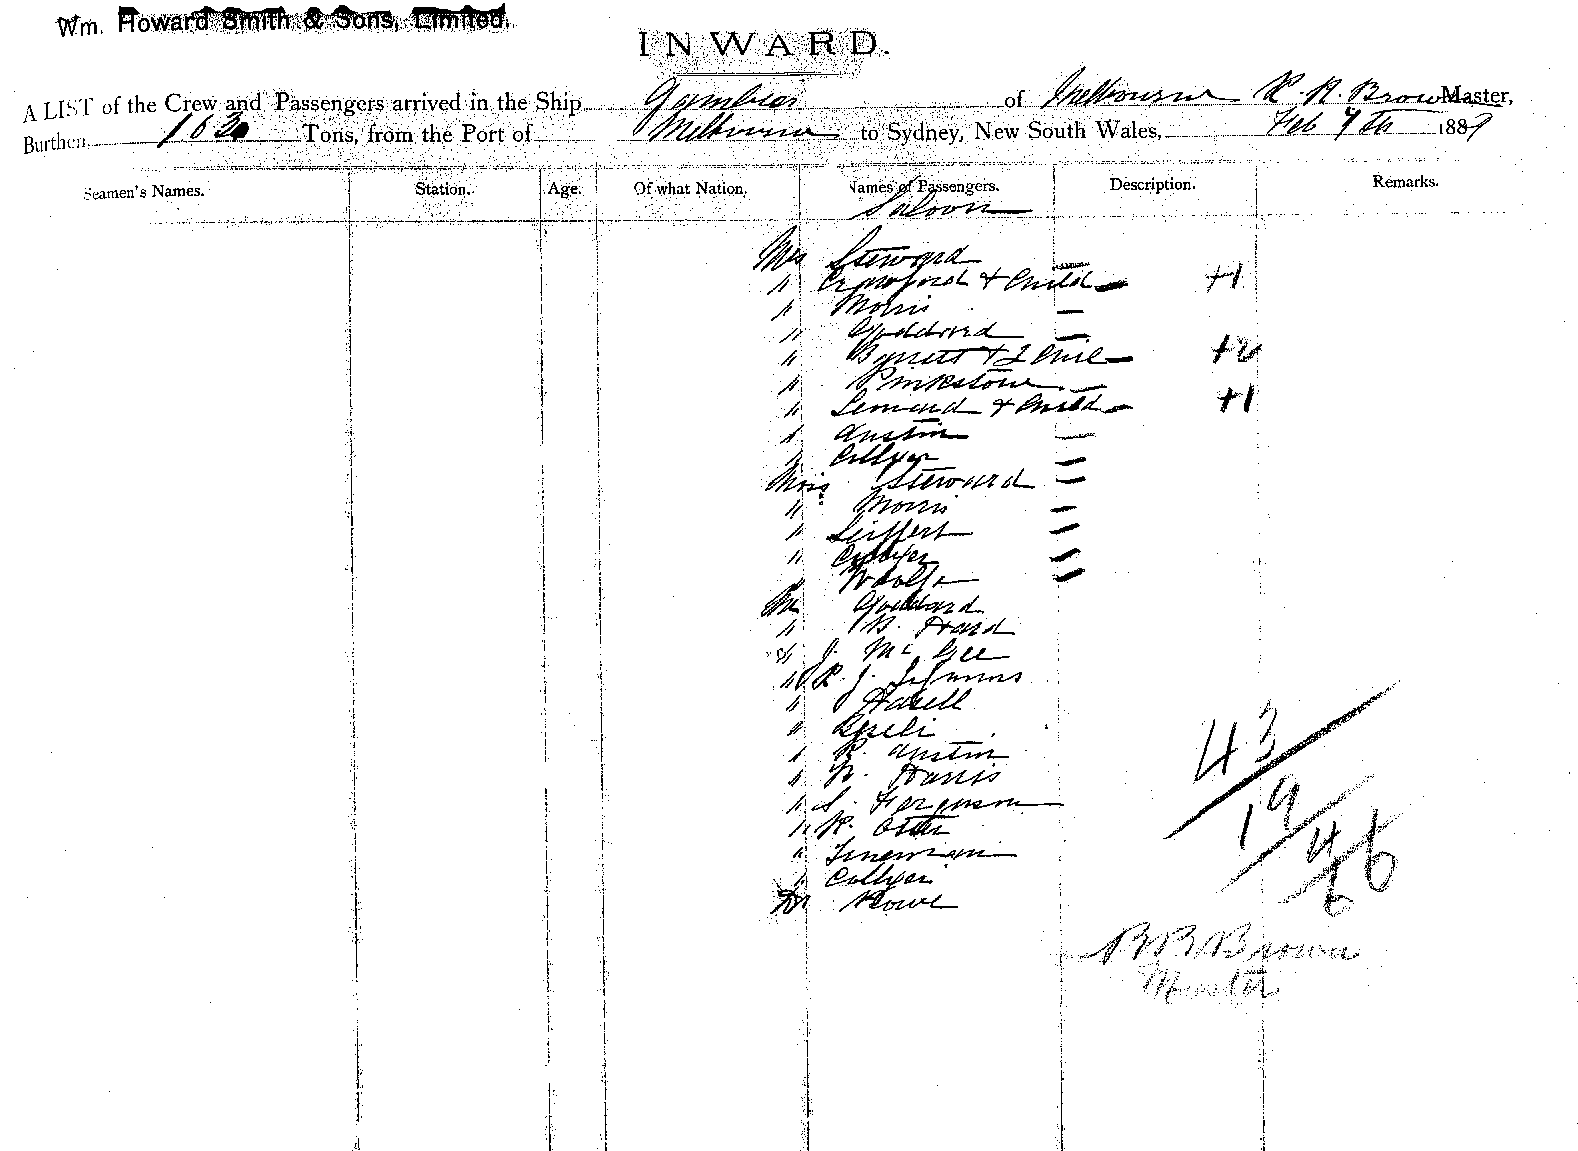 Wm. Howard Smith & Sons, Limited.
INWARD.
A LIST of the Crew and Passengers arrived in the Ship Gambier of Melbourne R. R. Brown Master,
Burthen 1630 Tons, from the Port of Melbourne to Sydney, New South Wales, Feb 7th 1889
Seamen's Names. Station. Age. Of what Nation. Names of Passengers. Description. Remarks.
Saloon
Mrs Steward
" Crawford & Child +1
" Morris
" Goddard
" & 2 Chil +2
" Pinkstone
" & Child +1
" Austin
" Collyer
Miss Steward
" Morris
" Seiffert
" Collyer
" Woolfe
Mr Goddard
" Hard
" J. McGee
" R. J.
" Hasell
"
" R. Austin
" Harris
" S. Ferguson
"
"
" Collyer
Dr Rowe
43
19
4
66
Brown
Master